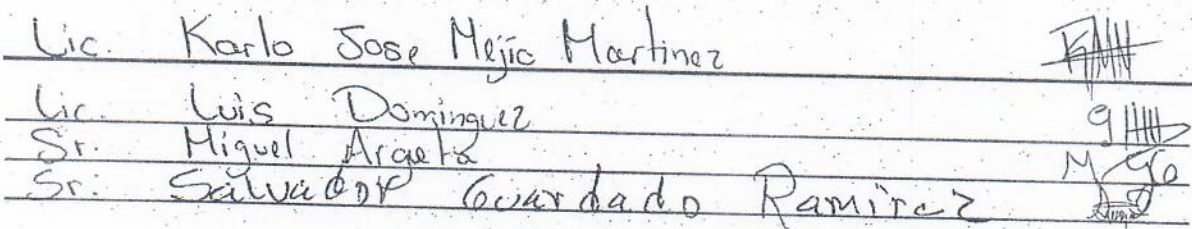 Lic. Karlo Jose Mejia Martinez
Lic. Luis Dominguez
Sr. Miguel Argeta
Sr. Salvador Guardado Ramirez